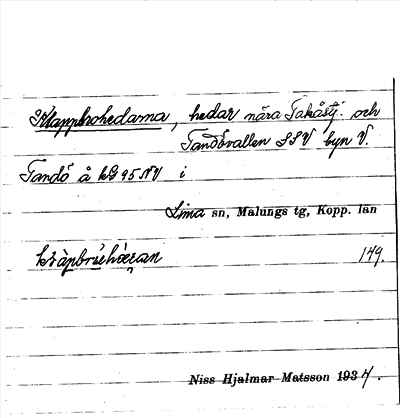 Klappbrohedarna, hedar nära Takåstj. och
Tandövallen SSV byn V.
Tandö å kG 95 NV i
Lima sn, Malungs tg, Kopp. län
149.
Niss Hjalmar Matsson 1937.